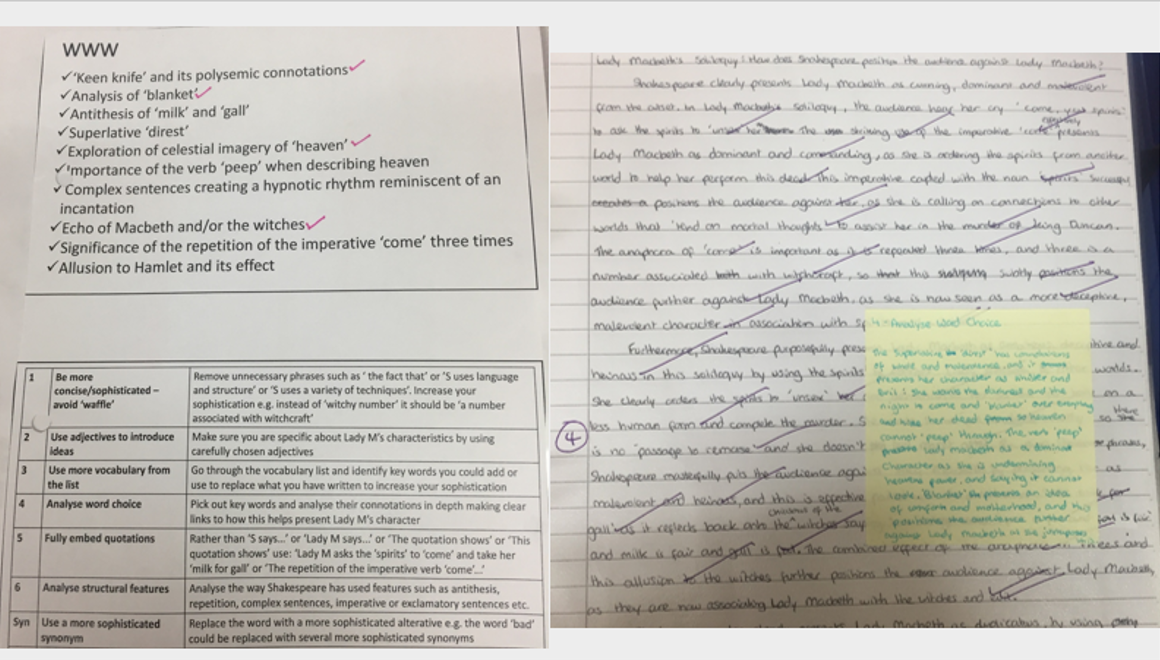 WWW
✓'Keen knife' and its polysemic connotations
✓Analysis of 'blanket'
✓Antithesis of 'milk' and 'gall'
✓Superlative 'direst'
✓Exploration of celestial imagery of 'heaven'
✓'mportance of the verb 'peep' when describing heaven
✓Complex sentences creating a hypnotic rhythm reminiscent of an
incantation
✓Echo of Macbeth and/or the witches
✓Significance of the repetition of the imperative 'come' three times
✓Allusion to Hamlet and its effect
1 Be more
concise/sophisticated –
avoid 'waffle'
Remove unnecessary phrases such as ' the fact that' or 'S uses language
and structure' or 'S uses a variety of techniques'. Increase your
sophistication e.g. instead of 'witchy number' it should be 'a number
associated with witchcraft'
2 Use adjectives to introduce
ideas
Make sure you are specific about Lady M's characteristics by using
carefully chosen adjectives
3 Use more vocabulary from
the list
Go through the vocabulary list and identify key words you could add or
use to replace what you have written to increase your sophistication
4 Analyse word choice
Pick out key words and analyse their connotations in depth making clear
links to how this helps present Lady M's character
5 Fully embed quotations
Rather than 'S says…' or 'Lady M says…' or 'The quotation shows' or 'This
quotation shows' use: 'Lady M asks the 'spirits' to 'come' and take her
'milk for gall' or 'The repetition of the imperative verb 'come'…'
6 Analyse structural features
Analyse the way Shakespeare has used features such as antithesis,
repetition, complex sentences, imperative or exclamatory sentences etc.
Syn Use a more sophisticated
synonym
Replace the word with a more sophisticated alterative e.g. the word 'bad'
could be replaced with several more sophisticated synonyms
Lady Macbeth's Soliloquy: How does Shakespeare position the audience against Lady Macbeth?
Shakespeare clearly presents Lady Macbeth as cunning, dominant and malevolent
from the outset. In Lady Macbeth's soliloquy, the audience hear her cry 'come, you spirits'
to ask the spirits to 'unsex her'. The striking use of the imperative 'come' presents
Lady Macbeth as dominant and commanding, as she is ordering the spirits from another
world to help her perform this deed. This imperative copled with the noun 'spirits'
positions the audience against her, as she is calling on connections to other
worlds that 'tend on mortal thoughts' to assist her in the murder of King Duncan.
The anaphora of 'come' is important as it is repeated three times, and three is a
number associated with witchcraft, so this subtly positions the
audience further against Lady Macbeth, as she is now seen as a more deceptive,
malevolent character in association with
Furthermore, Shakespeare purposefully
heinous in this soliloquy by using the spirits worlds.
She clearly orders the spirits to 'unsex' her
less human form and complete the murder.
4
is no 'passage to remorse' and she doesn't phrases,
Shakespeare masterfully puts the audience as
malevolent and heinous, and this is effective
gall' as it reflects back onto the witches say is fair'
and milk a fair and gall is foul. The combined effect of the threes and
this allusion to the witches further positions the audience against Lady Macbeth,
as they are now associating Lady Macbeth with the witches and
4- Analyse Word Choice
The superlative 'direst' has connotations
of and malevolence, and it
presents her character as sinister and
evil: she wants the darkness and the
night to come and 'blanket' over everything
and hide her deed so heaven
cannot 'peep' through. The verb 'peep'
Lady macbeth as a dominant
character as she is undermining
heavens power, and saying it cannot
look. 'Blanket' presents an idea
of and motherhood, and this
positions the audience further
against Lady Macbeth as she